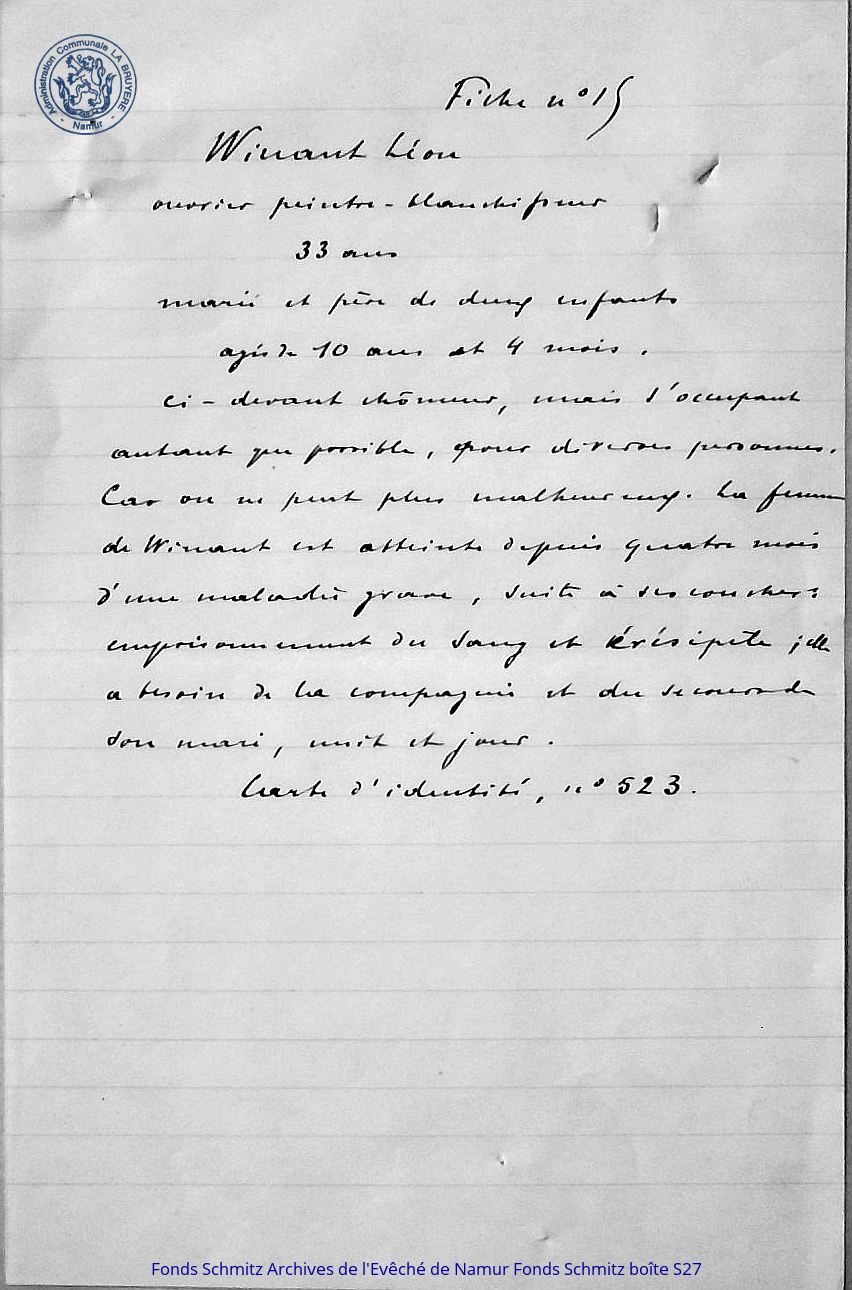 Administration Communale LA BRUYERE
- Namur -
Fiche n° 15
Winant Léon
ouvrier peintre-blanchisseur
33 ans
marié et père de deux enfants
agés de 10 ans et 4 mois.
ci-devant chômeur, mais s'occupant
autant que possible, pour diverses personnes.
Cas on ne peut plus malheureux. La femme
de Winant est atteinte depuis quatre mois
d'une maladie grave, suite à ses couches:
empoisonnement du sang et érésipèle; elle
a besoin de la compagnie et du secours de
son mari, nuit et jour.
Carte d'identité, n° 523.
Fonds Schmitz Archives de l'Evêché de Namur Fonds Schmitz boîte S27